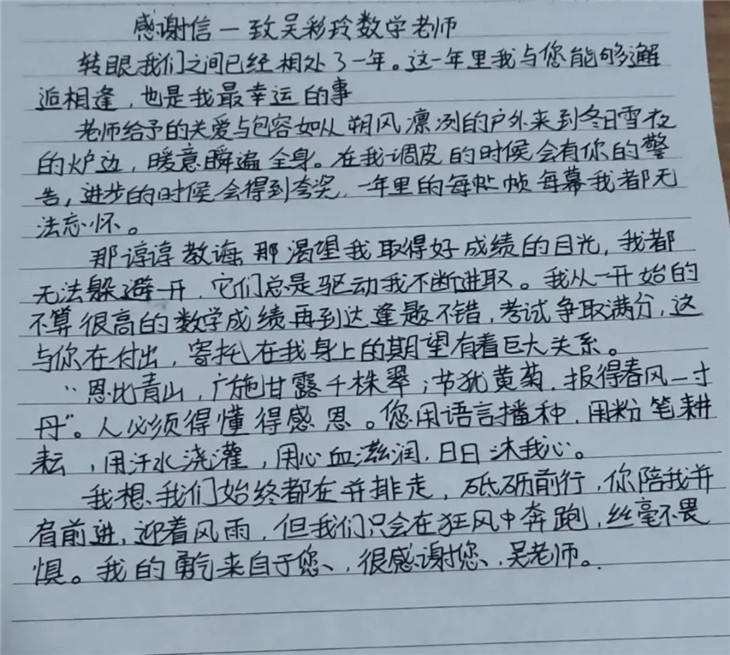 感谢信一致吴彩玲数学老师
转眼我们之间已经相处了一年。这一年里我与您能够邂
逅相逢，也是我最幸运的事
老师给予的关爱与包容如从朔风凛冽的户外来到冬日雪夜
的炉边，暖意瞬遍全身。在我调皮的时候会有你的警
告，进步的时候会得到夸奖，一年里的每帧每幕我都无
法忘怀。
那谆谆教诲那渴望我取得好成绩的目光，我都
无法躲避开，它们总是驱动我不断进取。我从一开始的
不算很高的数学成绩再到达逢题不错，考试争取满分，这
与你在付出，寄托在我身上的期望有着巨大关系。
"恩比青山，广施甘露千株翠；节犹黄菊，报得春风一寸
丹"。人必须得懂得感恩。您用语言播种，用粉笔耕
耘，用汗水浇灌，用心血滋润，日日沐我心。
我想、我们始终都在并排走，砥砺前行，你陪我并
肩前进，迎着风雨，但我们只会在狂风中奔跑，丝毫不畏
惧。我的勇气来自于您、很感谢您、吴老师。